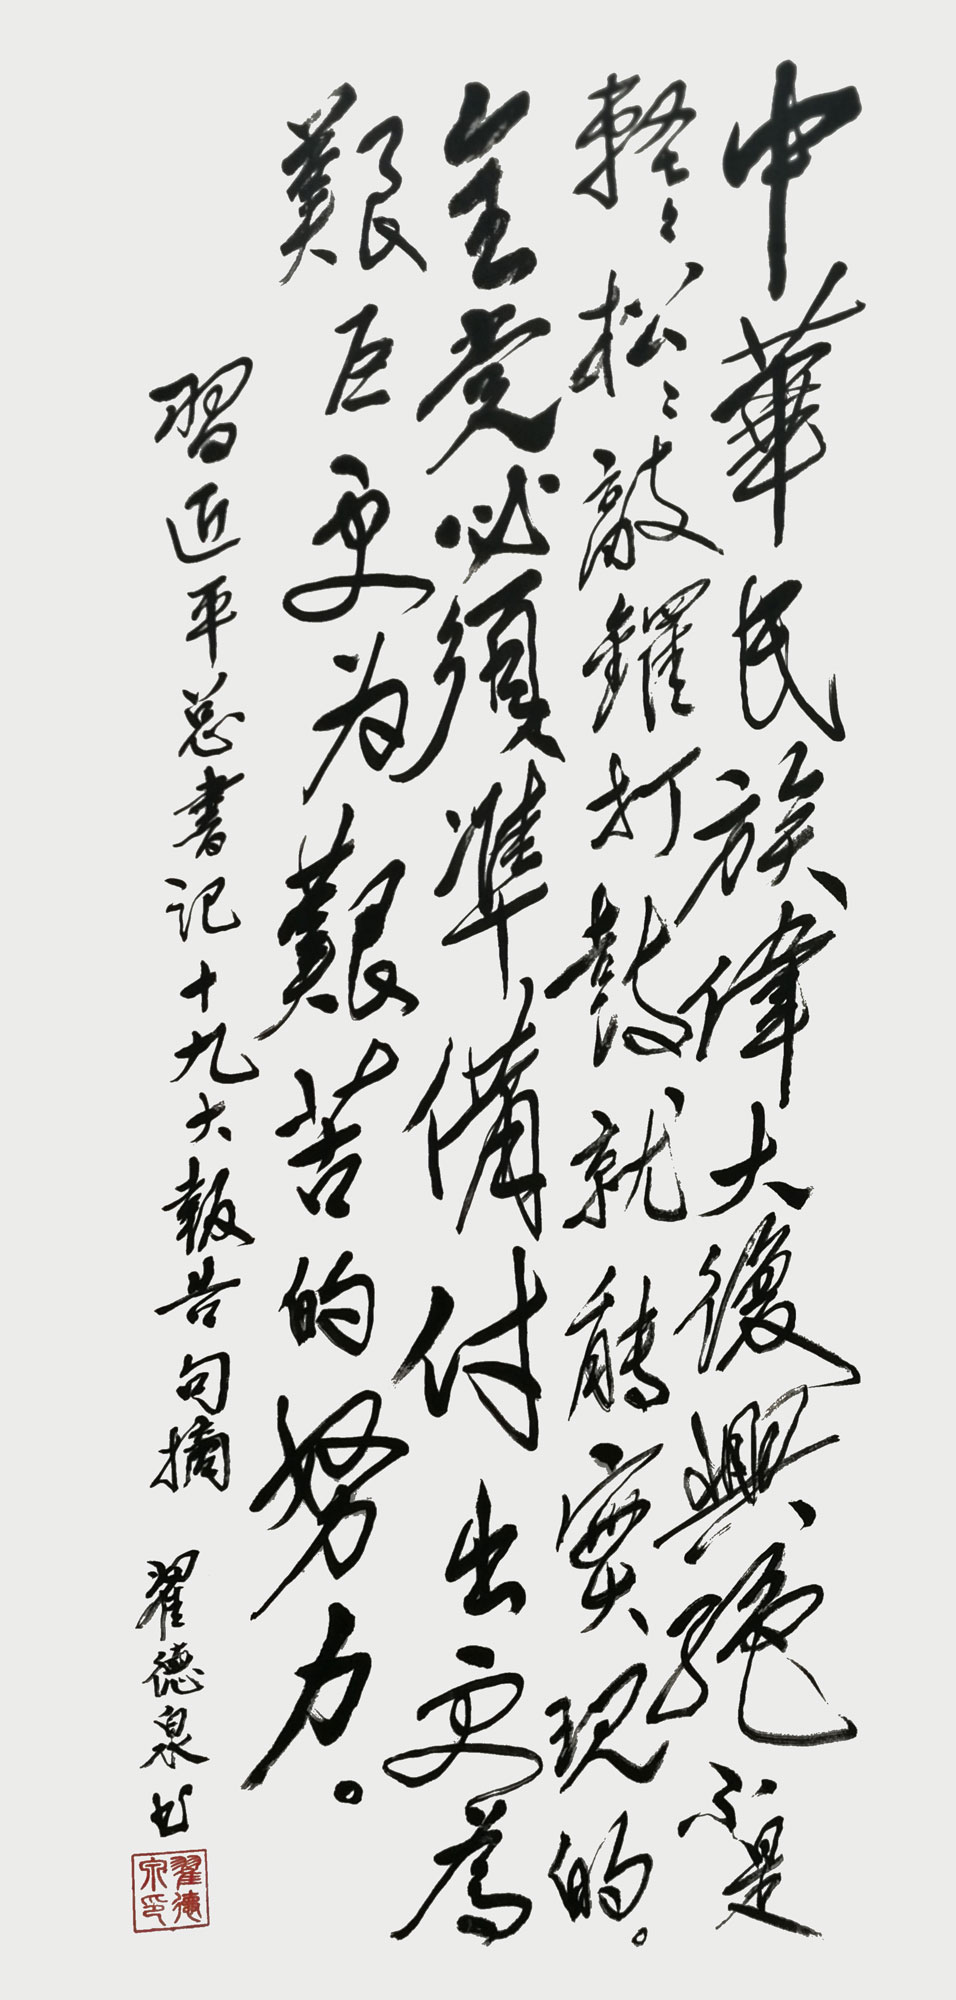 中華民族偉大復興絕不是
輕々松々敲鑼打鼓就能實現的。
全党必須準備付出更為
艱巨更为艱苦的努力。
習近平总書记十九大報告句摘 翟德泉书
翟德泉印